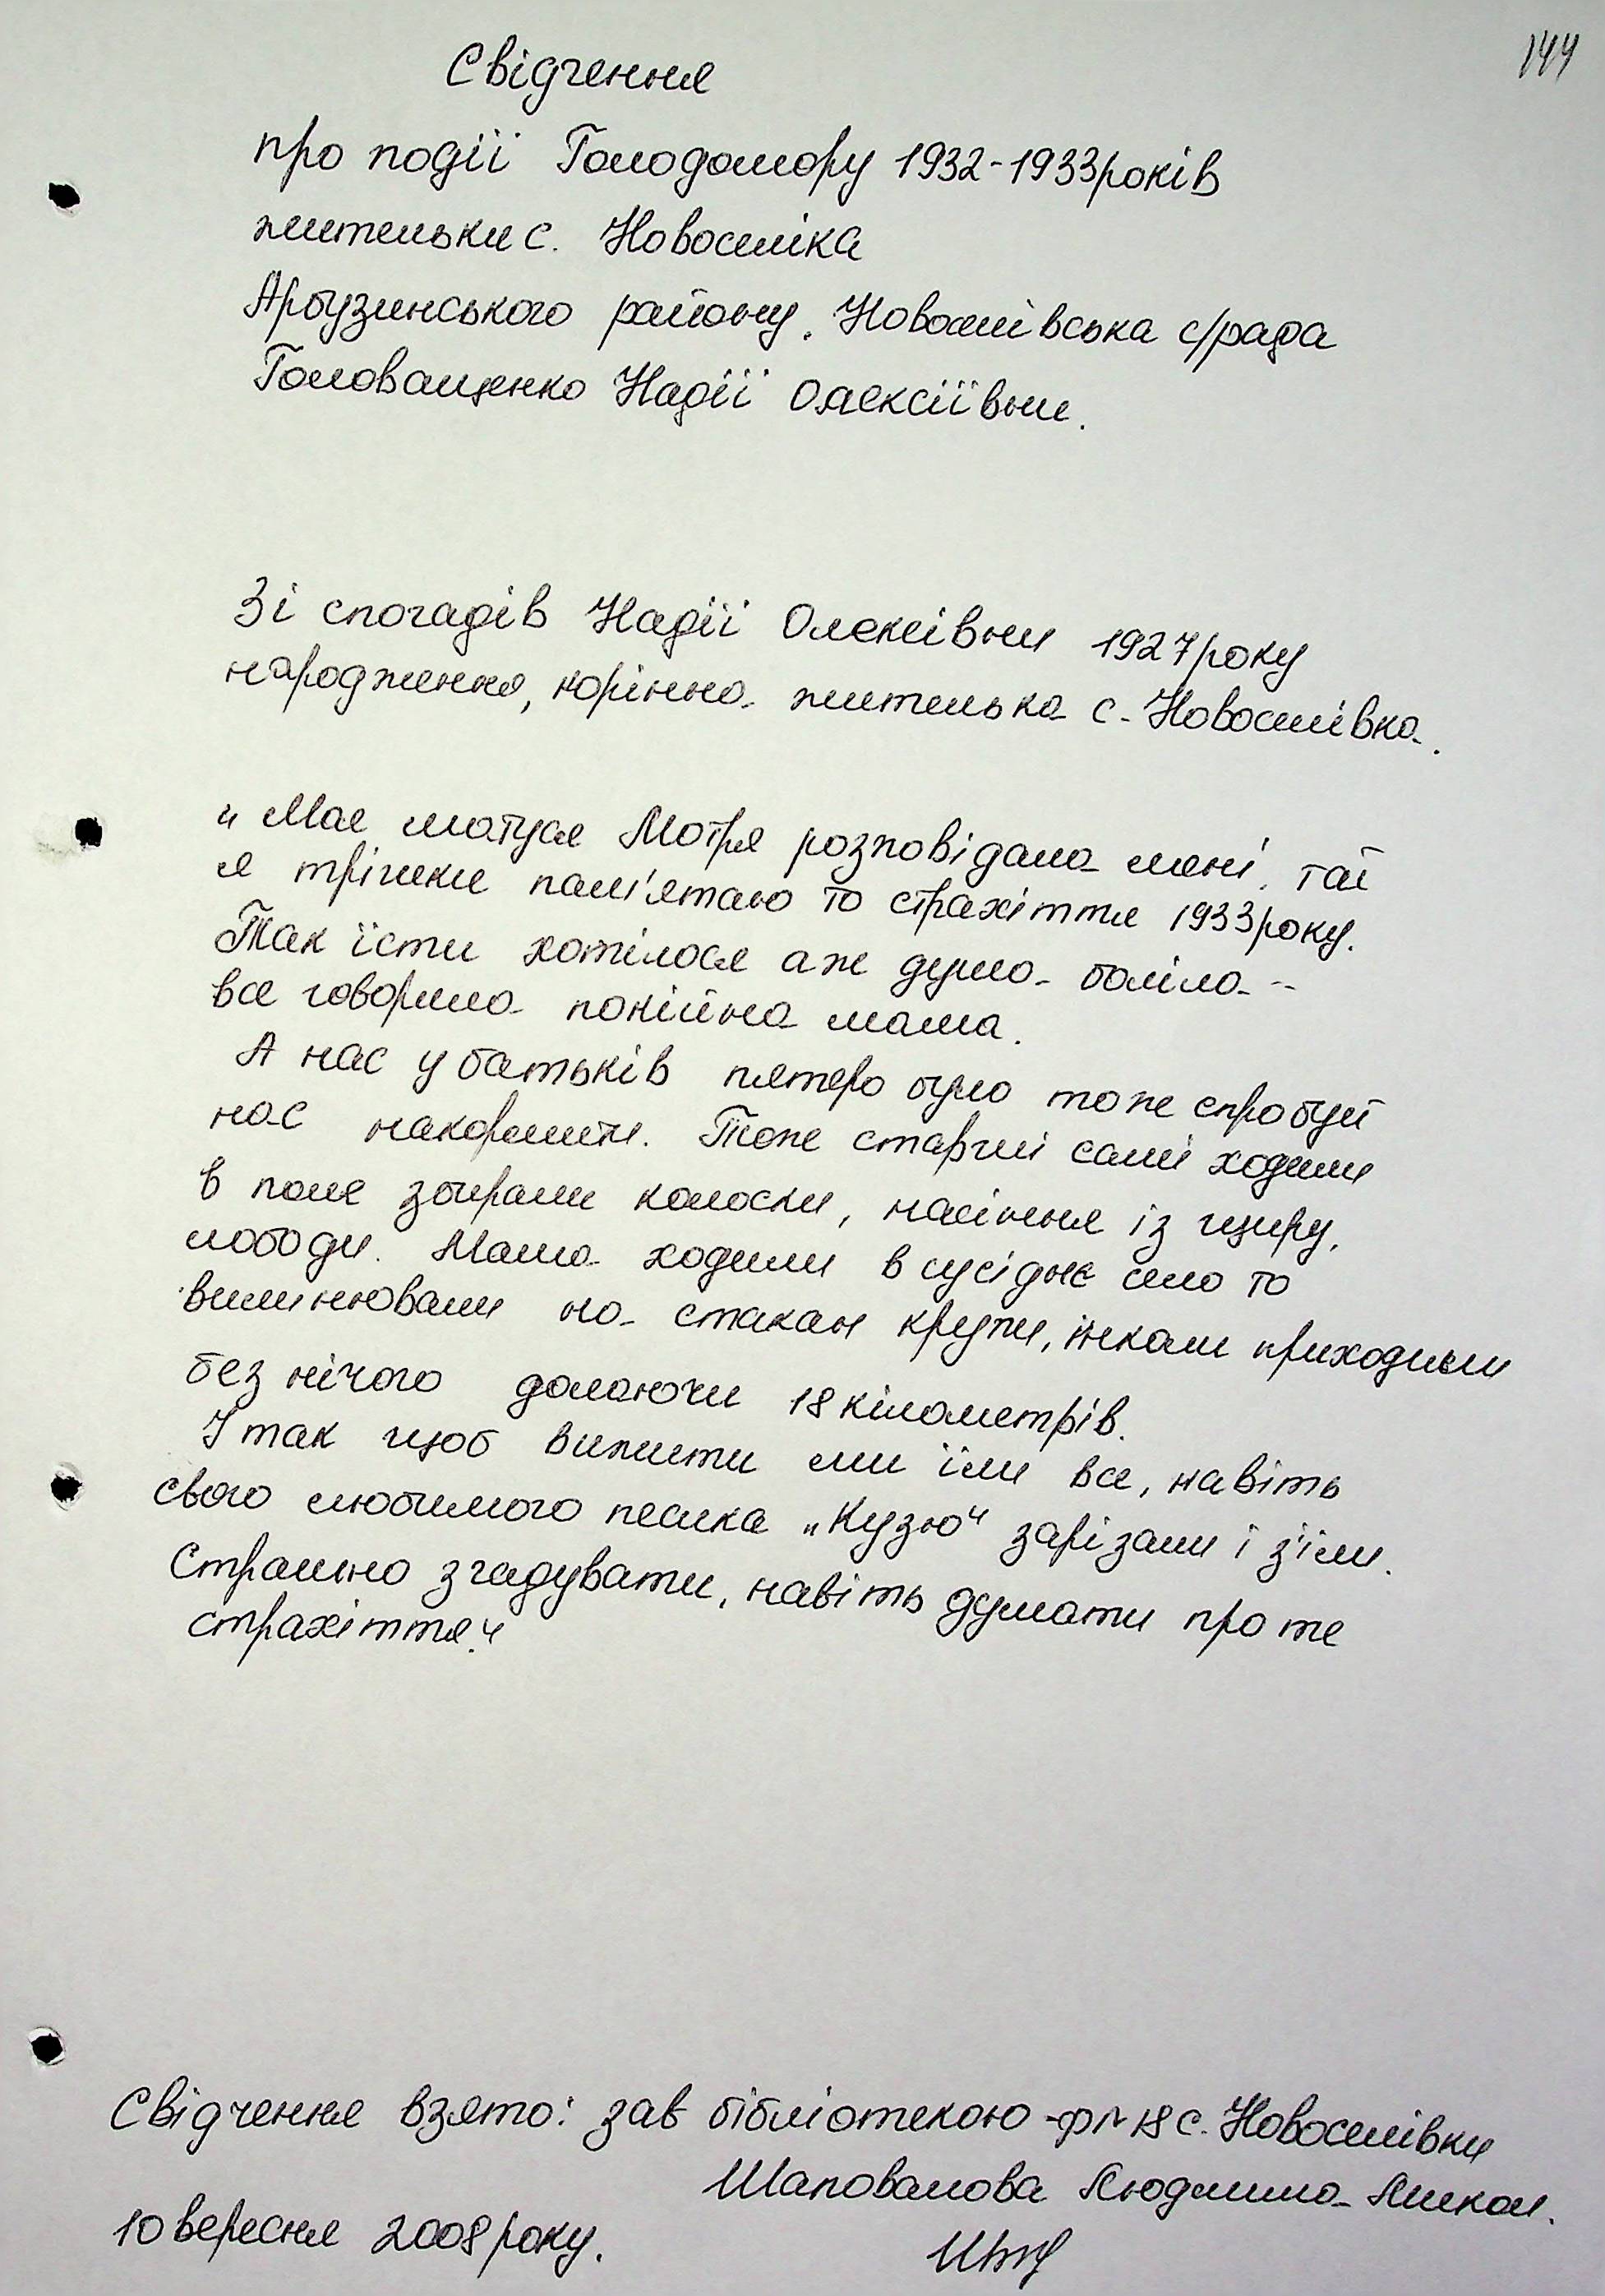 144
Свідчення
про події Голодомору 1932-1933років
жительки с. Новоселівка
Арбузинського району. Новоселівська с/рада
Голованценко Надії Олексіївни.
Зі спогадів Надії Олексіївни 1927року
народження, корінна жителька с. Новоселівка.
„ Моя матуся Мотря розповідала мені, таї
я трішки пам'ятаю то страхіття 1933року.
Так їсти хотілося аж душа боліла --
все говорила покійна мама.
А нас у батьків пятеро було тоже спробуй
нас накормити. Тоже старші самі ходили
в поле збирали колоски, насіння із щиру,
лободи. Мама ходили в сусіднє село то
вимінювали на стакан крупи, інколи приходили
без нічого долаючи 18 кілометрів.
І так щоб вижити ми їли все, навіть
свого любимого песика „Кузю“ зарізали і з'їли.
Страшно згадувати, навіть думати про те
страхіття.“
Свідчення взято: зав бібліотекою -ф№18 с. Новоселівки
Шаповалова Людмила
10 вересня 2008 року.